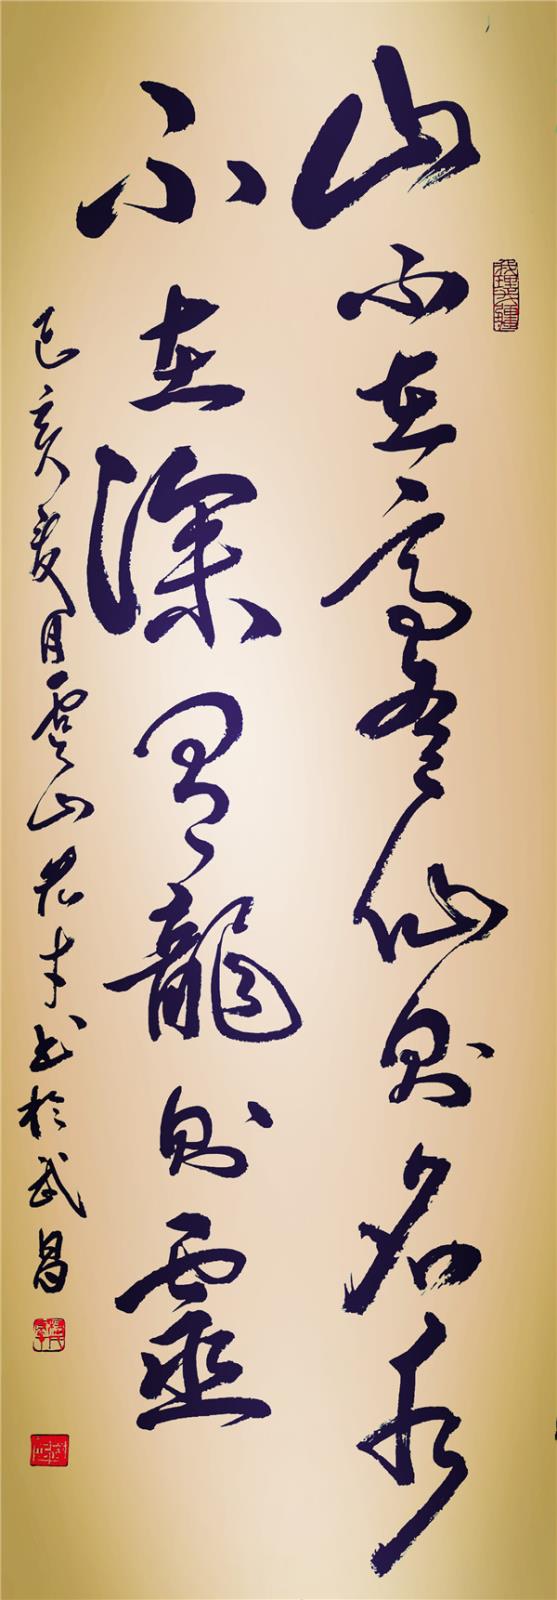 山不在高有仙則名水
不在深有龍則靈
己亥夏月雲山老書於武昌